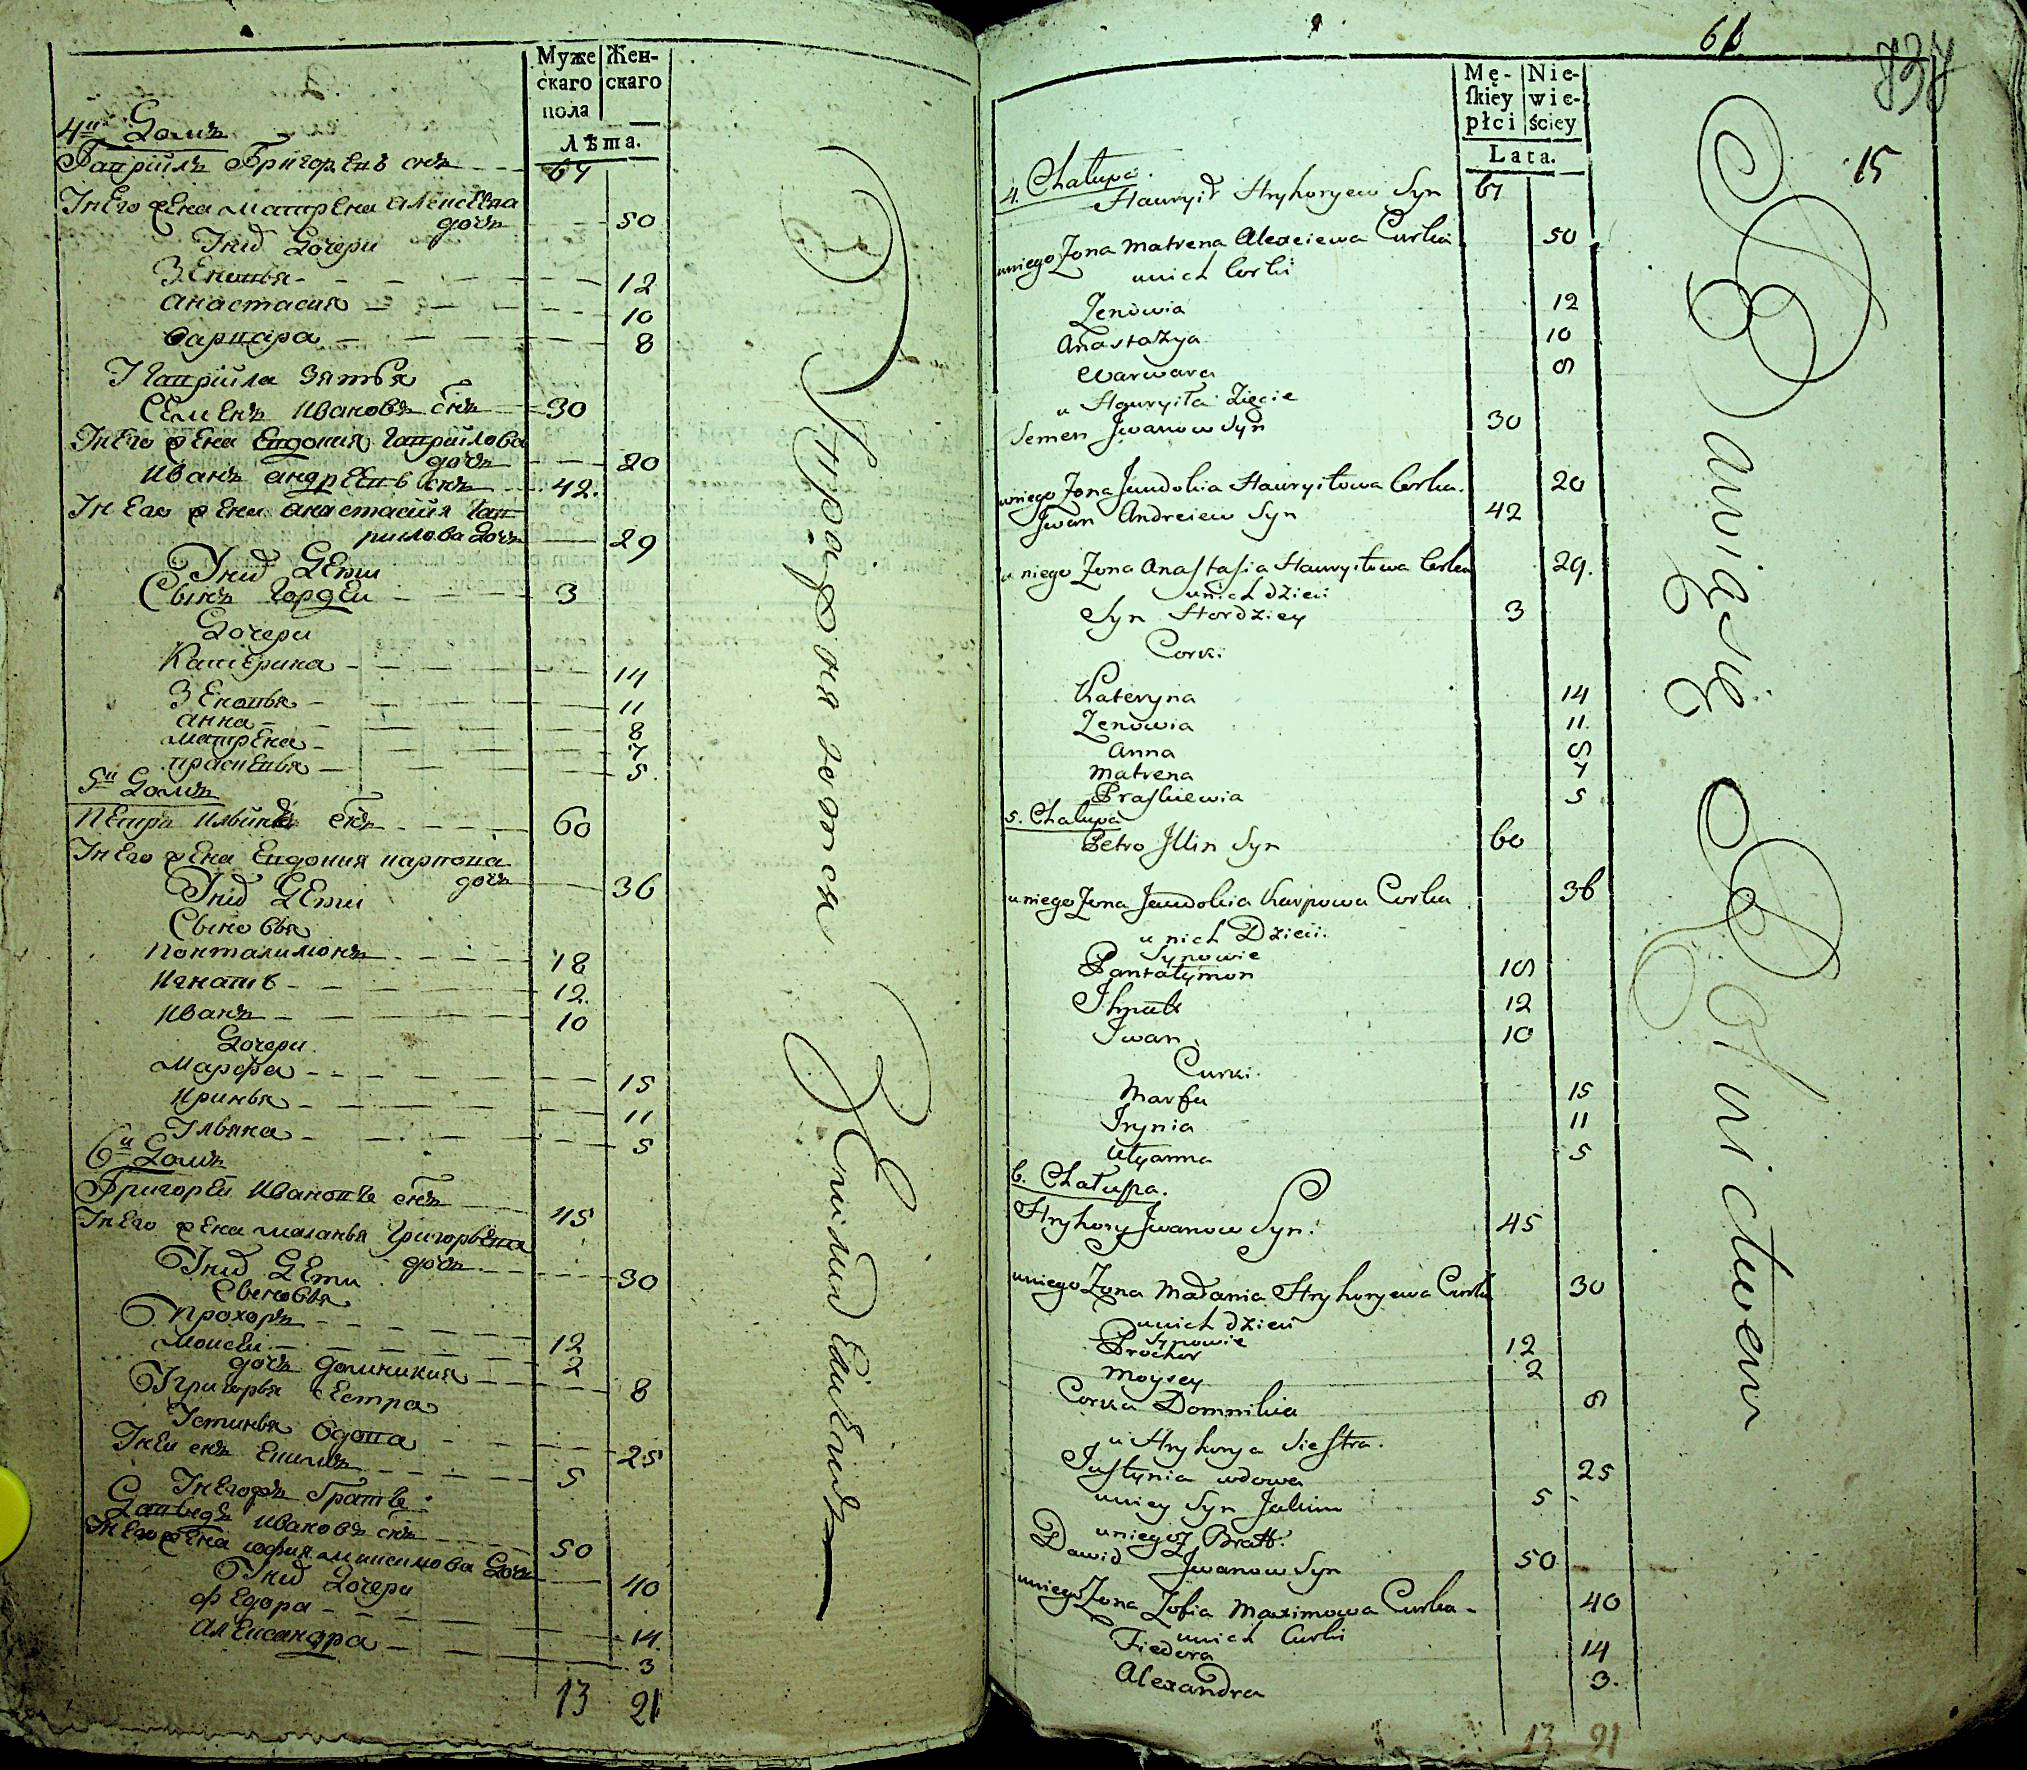 Муже
скаго
пола
Жен-
скаго
Лѣта.
4й Домъ
Гаврiилъ Григорьевъ снъ 67
У него жена Матрена Алексеева
дочь 50
У нид Дочери
Зеновья 12
Анастасия 10
Варвара 8
У Гаврiила Зятья
Семенъ Ивановъ снъ 30
У него жена Евдокия Гаврiилова
дочь 20
Иванъ Андреевъ снъ 42.
У него жена Анастасия Гав
рилова дочь 29
У нид Дети
Сынъ Гордеи 3
Дочери
Катерина 14
Зеновья 11
Анна 8
Матрена 7
Прасковья 5.
5й Домъ
Петръ Ильинъ снъ 60
У него жена Евдокия Карпова
дочь 36
У нид Дети
Сыновья
Понталимонъ 18
Игнатъ 12.
Иванъ 10
Дочери
Марфа 15
Иринья 11
Ульяна 5
6й Домъ
Григореи Ивановъ снъ 45
У него жена Маланья Григорьева
дочь 30
У нид Дети
Сыновья
Прохоръ 12
Моисеи 2
дочь Домникия 8
У Григорья Сестра
Устинья Вдова 25
У неи снъ Екимъ 5
У негожъ братъ
Давыдъ Ивановъ снъ 50
У него жена София Максимова дочь 40
У нид Дочери
Федора 14
Александра 3
13 21
Упражняются
Земледелиемъ
61
737
15
Mę-
skiey
płci
Nie-
wie-
ściey
Lata.
4. Chałupa.
Hauryił Hryhoryew Syn 67
u niego Zona Matrena Alexciewa Curka 50
u nich Corki
Zenowia 12
Anastazya 10
Warwara 8
u Hauryiła Zięcie
Semen Jwanow Syn 30
u niego Zona Jewdokia Hauryiłowa Corka. 20
Jwan Andreiew Syn 42
u niego Zona Anastasia Hauryiłowa Corka 29.
u nich dzieci
Syn Hordziey 3
Corki
Kateryna 14
Zenowia 11.
Anna 8
Matrena 7
Praskiewia 5
5. Chałupa
Petro Jllin Syn 60
u niego Zona Jewdokia Karpowa Corka 36
u nich Dzieci.
Synowie
Pantałymon 18
Ihnatt 12
Jwan 10
Curki.
Marfa 15
Irynia 11
Ulyanna 5
6. Chałupa.
Hryhory Jwanow Syn. 45
u niego Zona Małania Hryhoryewa Curka 30
u nich dzieci
Synowie
Prochor 12
Moysey 2
Corka Domnikia 8
u Hryhorya Siestra.
Justynia wdowa 25
u niey Syn Jakim 5
u niegoz Bratt.
Dawid Jwanow Syn 50
u niego Zona Zofia Maximowa Curka 40
u nich Curki
Fiedora 14
Alexandra 3.
13 21
Bawią się Rolnictwem